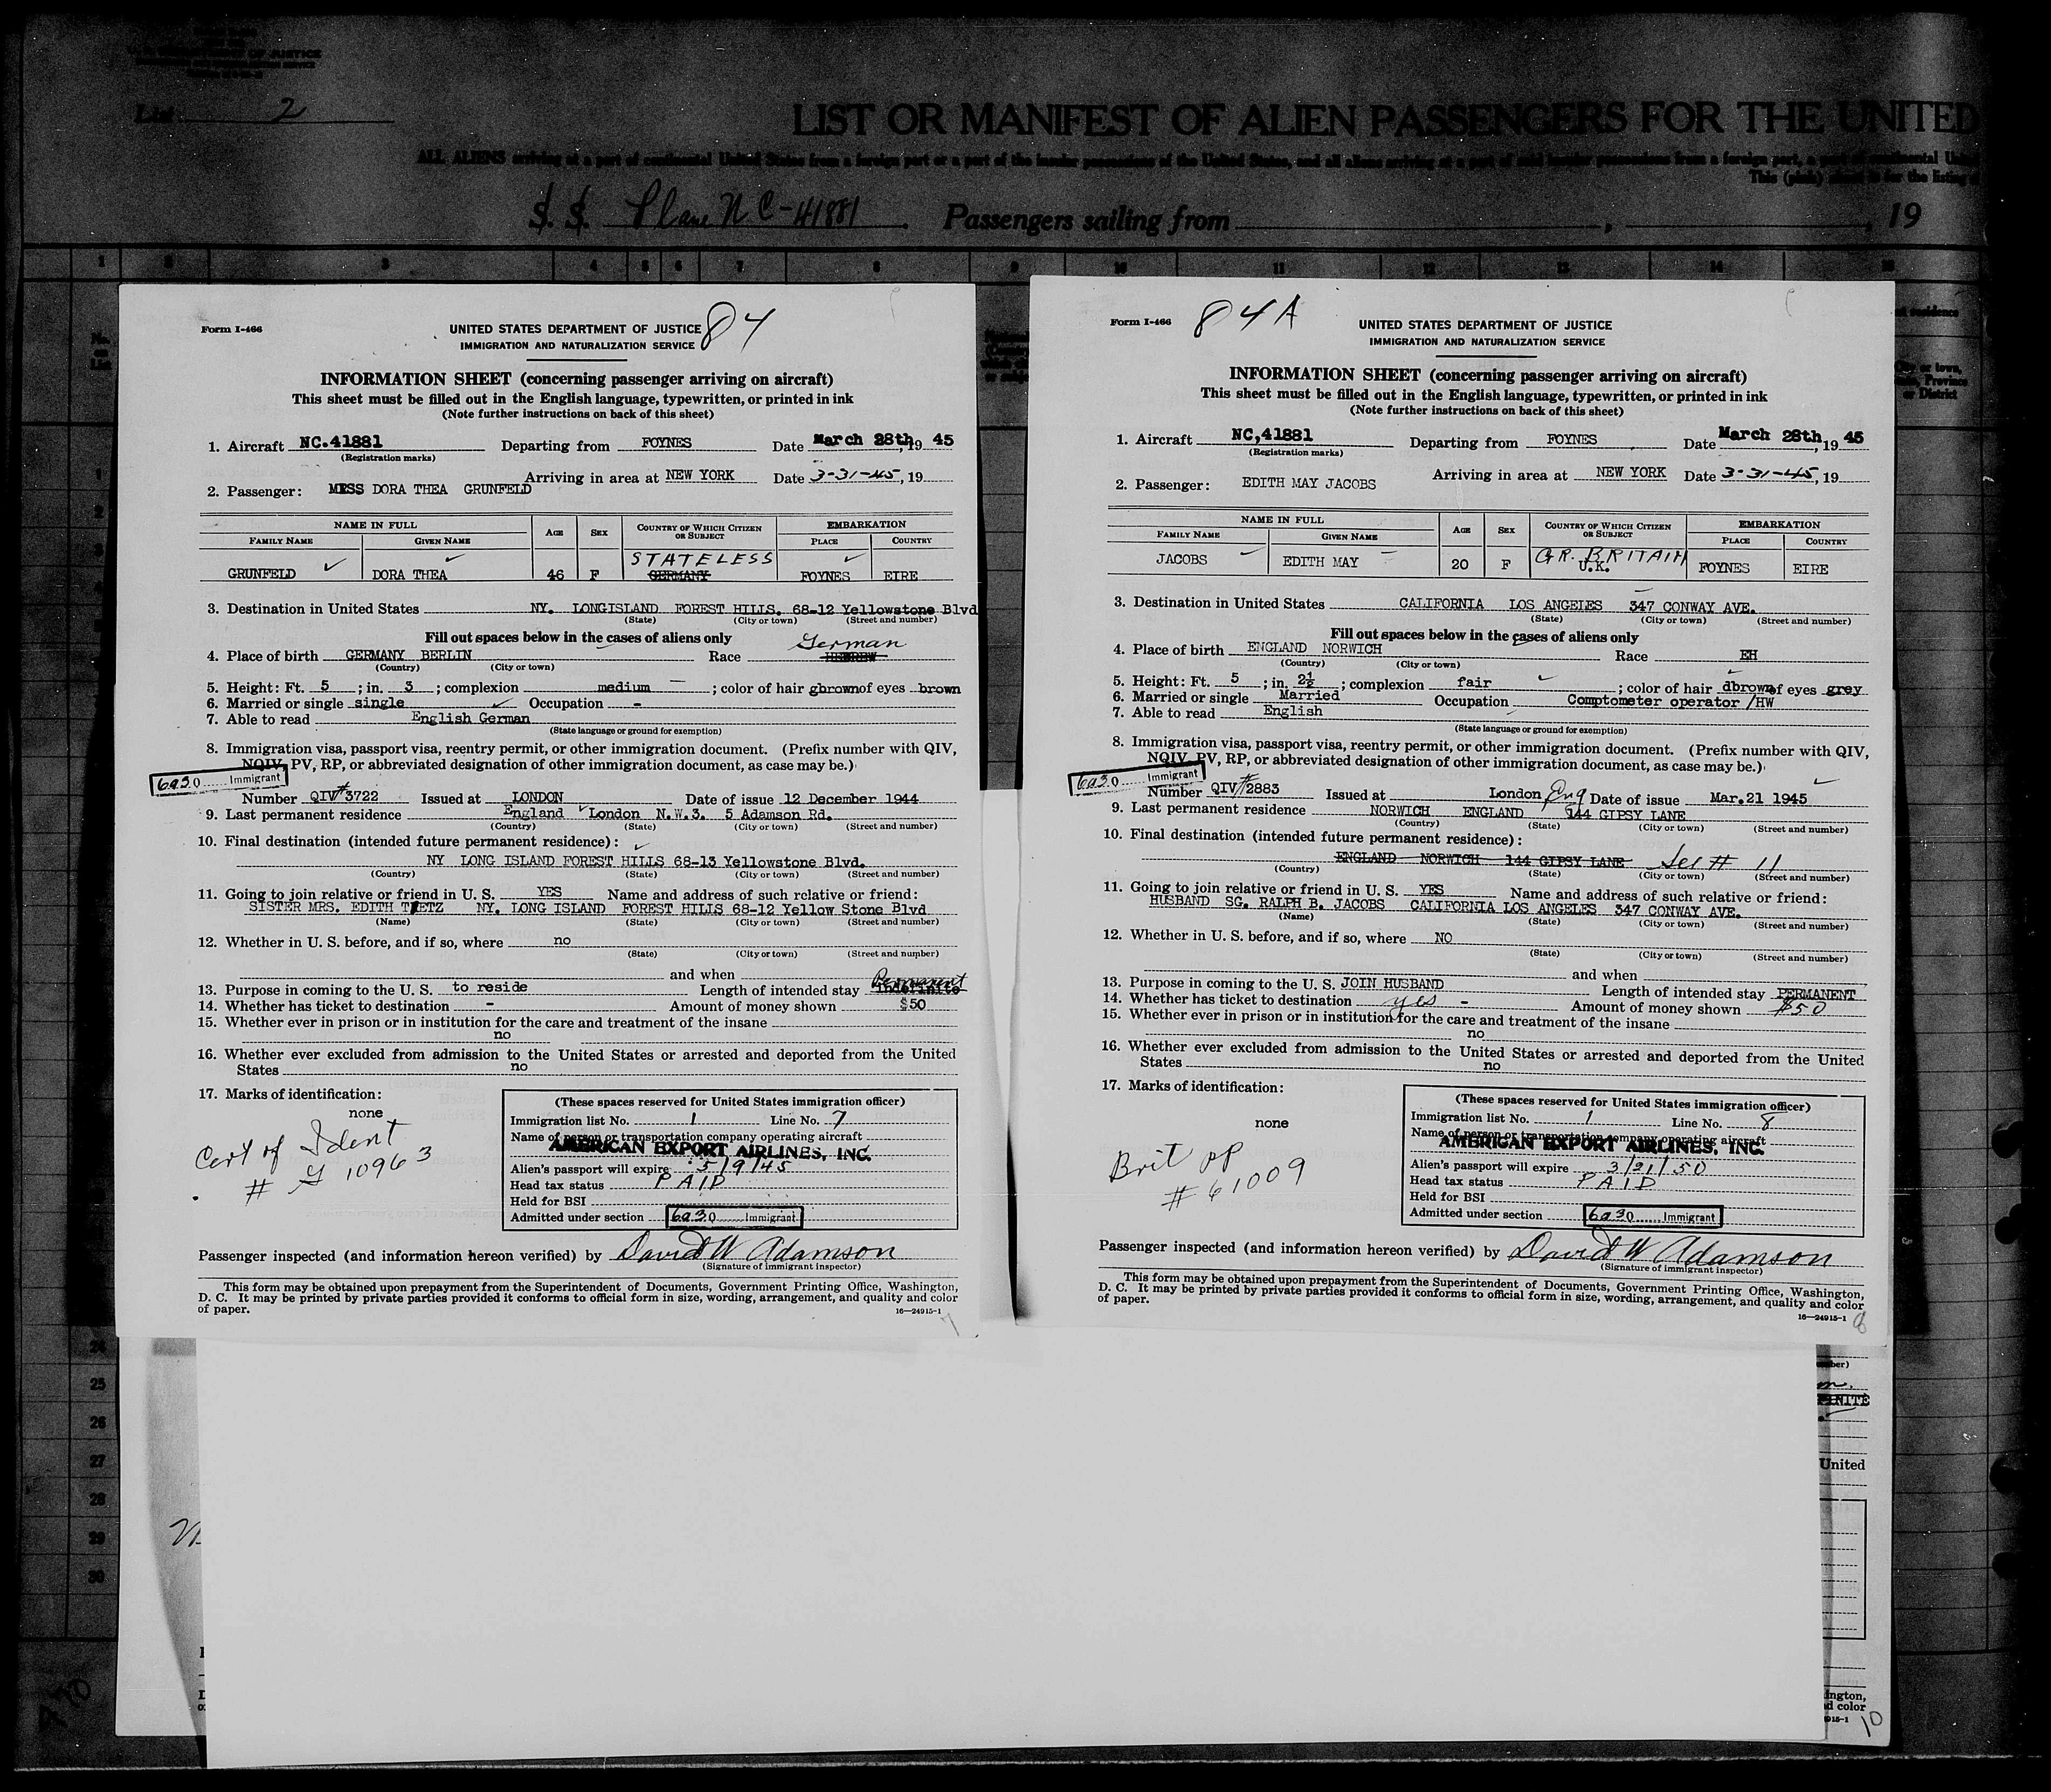 List 2
LIST OR MANIFEST OF ALIEN PASSENGERS FOR THE UNITED
ALL ALIENS arriving at a port of continental United States from a foreign port or a port of the insular possessions of the United States, and all aliens arriving at a port of said insular possessions from a foreign port, a port of continental United
This (pink) sheet is for the listing
S. S. Plane NC-41881 Passengers sailing from , , 19
1 2 3 4 5 6 7 8 9 10 11 12 13 14 15
84
Form I-466
UNITED STATES DEPARTMENT OF JUSTICE
IMMIGRATION AND NATURALIZATION SERVICE
INFORMATION SHEET (concerning passenger arriving on aircraft)
This sheet must be filled out in the English language, typewritten, or printed in ink
(Note further instructions on back of this sheet)
1. Aircraft NC.41881 Departing from FOYNES Date March 28th, 19 45
(Registration marks)
Arriving in area at NEW YORK Date 3-31-45, 19
2. Passenger: MISS DORA THEA GRUNFELD
NAME IN FULL AGE SEX COUNTRY OF WHICH CITIZEN OR SUBJECT EMBARKATION
FAMILY NAME GIVEN NAME PLACE COUNTRY
STATELESS
GRUNFELD DORA THEA 46 F GERMANY FOYNES EIRE
3. Destination in United States NY. LONGISLAND FOREST HILLS. 68-12 Yellowstone Blvd
(State) (City or town) (Street and number)
Fill out spaces below in the cases of aliens only
German
4. Place of birth GERMANY BERLIN Race HEBREW
(Country) (City or town)
5. Height: Ft. 5 ; in. 3 ; complexion medium ; color of hair gbrown of eyes brown
6. Married or single single Occupation -
7. Able to read English German
(State language or ground for exemption)
8. Immigration visa, passport visa, reentry permit, or other immigration document. (Prefix number with QIV,
NQIV, PV, RP, or abbreviated designation of other immigration document, as case may be.)
6a30 Immigrant
Number QIV#3722 Issued at LONDON Date of issue 12 December 1944
9. Last permanent residence England London N.W.3. 5 Adamson Rd.
(Country) (State) (City or town) (Street and number)
10. Final destination (intended future permanent residence):
NY LONG ISLAND FOREST HILLS 68-13 Yellowstone Blvd.
(Country) (State) (City or town) (Street and number)
11. Going to join relative or friend in U. S. YES Name and address of such relative or friend:
SISTER MRS. EDITH TIETZ NY. LONG ISLAND FOREST HILLS 68-12 Yellow Stone Blvd
(Name) (State) (City or town) (Street and number)
12. Whether in U. S. before, and if so, where no
(State) (City or town) (Street and number)
and when
Permanent
13. Purpose in coming to the U. S. to reside Length of intended stay Indefinite
14. Whether has ticket to destination - Amount of money shown $50
15. Whether ever in prison or in institution for the care and treatment of the insane
no
16. Whether ever excluded from admission to the United States or arrested and deported from the United
States no
17. Marks of identification:
none
Cert of Ident
# G 10963
(These spaces reserved for United States immigration officer)
Immigration list No. 1 Line No. 7
Name of person or transportation company operating aircraft
AMERICAN EXPORT AIRLINES, INC.
Alien's passport will expire 5/9/45
Head tax status PAID
Held for BSI
Admitted under section 6a30 Immigrant
Passenger inspected (and information hereon verified) by David W Adamson
(Signature of immigrant inspector)
This form may be obtained upon prepayment from the Superintendent of Documents, Government Printing Office, Washington,
D. C. It may be printed by private parties provided it conforms to official form in size, wording, arrangement, and quality and color
of paper.
16—24915-1
7
84A
Form I-466
UNITED STATES DEPARTMENT OF JUSTICE
IMMIGRATION AND NATURALIZATION SERVICE
INFORMATION SHEET (concerning passenger arriving on aircraft)
This sheet must be filled out in the English language, typewritten, or printed in ink
(Note further instructions on back of this sheet)
1. Aircraft NC,41881 Departing from FOYNES Date March 28th, 19 45
(Registration marks)
Arriving in area at NEW YORK Date 3-31-45, 19
2. Passenger: EDITH MAY JACOBS
NAME IN FULL AGE SEX COUNTRY OF WHICH CITIZEN OR SUBJECT EMBARKATION
FAMILY NAME GIVEN NAME PLACE COUNTRY
GR. BRITAIN
JACOBS EDITH MAY 20 F U.K. FOYNES EIRE
3. Destination in United States CALIFORNIA LOS ANGELES 347 CONWAY AVE.
(State) (City or town) (Street and number)
Fill out spaces below in the cases of aliens only
4. Place of birth ENGLAND NORWICH Race EH
(Country) (City or town)
5. Height: Ft. 5 ; in. 2½ ; complexion fair ; color of hair dbrown of eyes grey
6. Married or single Married Occupation Comptometer operator /HW
7. Able to read English
(State language or ground for exemption)
8. Immigration visa, passport visa, reentry permit, or other immigration document. (Prefix number with QIV,
NQIV, PV, RP, or abbreviated designation of other immigration document, as case may be.)
6a30 Immigrant
Number QIV#2883 Issued at London Eng Date of issue Mar.21 1945
9. Last permanent residence NORWICH ENGLAND 144 GIPSY LANE
(Country) (State) (City or town) (Street and number)
10. Final destination (intended future permanent residence):
ENGLAND NORWICH 144 GIPSY LANE See # 11
(Country) (State) (City or town) (Street and number)
11. Going to join relative or friend in U. S. YES Name and address of such relative or friend:
HUSBAND SG. RALPH B. JACOBS CALIFORNIA LOS ANGELES 347 CONWAY AVE.
(Name) (State) (City or town) (Street and number)
12. Whether in U. S. before, and if so, where NO
(State) (City or town) (Street and number)
and when
13. Purpose in coming to the U. S. JOIN HUSBAND Length of intended stay PERMANENT
14. Whether has ticket to destination yes - Amount of money shown $50
15. Whether ever in prison or in institution for the care and treatment of the insane
no
16. Whether ever excluded from admission to the United States or arrested and deported from the United
States no
17. Marks of identification:
none
Brit PP
# 61009
(These spaces reserved for United States immigration officer)
Immigration list No. 1 Line No. 8
Name of person or transportation company operating aircraft
AMERICAN EXPORT AIRLINES, INC.
Alien's passport will expire 3/21/50
Head tax status PAID
Held for BSI
Admitted under section 6a30 Immigrant
Passenger inspected (and information hereon verified) by David W Adamson
(Signature of immigrant inspector)
This form may be obtained upon prepayment from the Superintendent of Documents, Government Printing Office, Washington,
D. C. It may be printed by private parties provided it conforms to official form in size, wording, arrangement, and quality and color
of paper.
16—24915-1
8
24
25
26
27
28
29
30
United
10